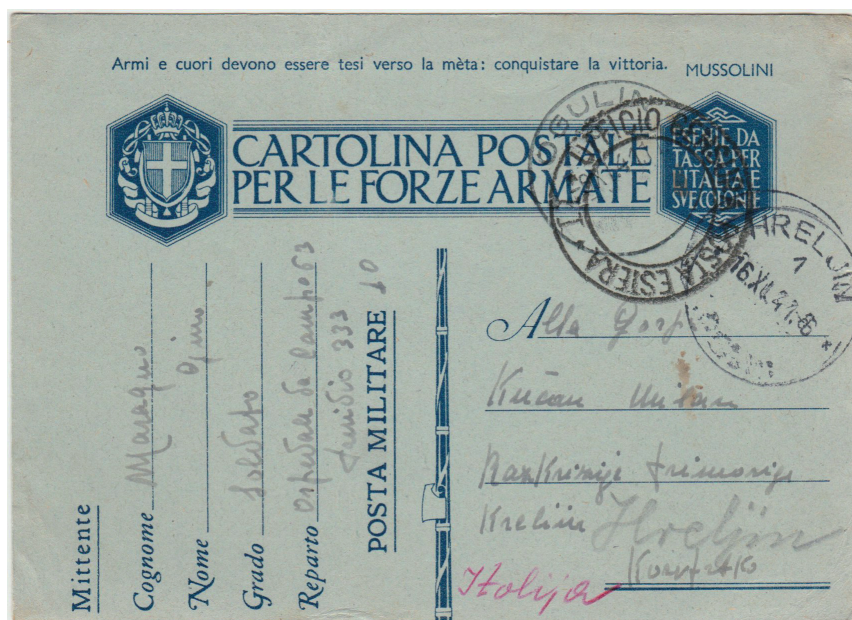 Armi e cuori devono essere tesi verso la mèta: conquistare la vittoria. MUSSOLINI
CARTOLINA POSTALE
PER LE FORZE ARMATE
ESENTE DA
TASSA PER
L'ITALIA E
SVE COLONIE
OGULIN
UFFICIO
POSTA ESTERA
HRELJIN
1
16.XII.41
Mittente
Cognome Maragno
Nome Gino.
Grado Soldato
Reparto Ospedale da Campo 63
333
POSTA MILITARE 10
Alla
Kučan Milan
Hreljin
Italija